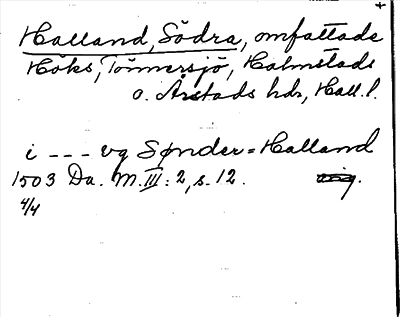 Halland, Södra, omfattade
Höks, Tönnersjö, Halmstads
o. Årstads hdr, Hall. l.
i --- og Sønder=Halland
1503 Da. M. III: 2, s. 12.
4/4